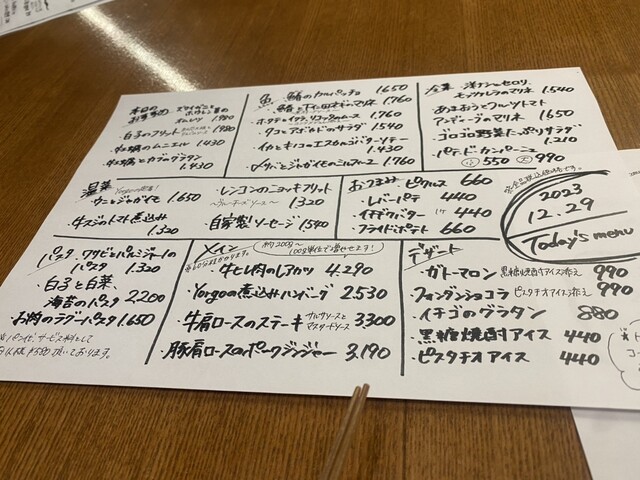 本日の
お享めの
ズワイガニと
ホウレン草の
オムレツ 1,980
・白子のフリット 1,980
・牡蠣のムニエル 1,430
・牡蠣とカブのグラタン
1,430
魚
・鰆のカルパッチョ 1,650
のマリネ 1,760
・ホタテとイクラ、 のマリネ 1,760
・タコとアボカドのサラダ 1,540
・イカとキノコのエスカルゴバターソテー
1,430
とジャガイモの 1,760
冷菜
・洋ナシとセロリ、
モッツァレラのマリネ 1,540
・あまおうとフルーツトマト
アンディーブのマリネ 1,650
・ゴロゴロ野菜たっぷりサラダ
1,210
・パテ・ド・カンパーニュ
小 550 大 990
温菜
Yorgoの定番!
・ウニとジャガイモ 1,650
・牛スジのトマト煮込み
1,320
・レンコンのニョッキフリット
〜ブルーチーズソース〜 1,320
・自家製ソーセージ 1,540
おつまみ
・ピクルス 660
・レバーパテ 440
・イチヂクバター 1ヶ 440
・フライドポテト 660
※全品税込価格です。
2023
12.29
Today's menu
パスタ
・ワサビとパルミジャーノの
パスタ 1,320
・白子と白菜、
海苔のパスタ 2,200
・お肉のラグーパスタ 1,650
サービス料として
¥330頂いております。
メイン
約200g〜
100g単位で増やせます!
・牛ヒレ肉のレアカツ 4,290
・Yorgoの煮込みハンバーグ 2,530
・牛肩ロースのステーキ サルサソースと
マスタードソース 3,300
・豚肩ロースのポークジンジャー 3,190
デザート
・ガトーマロン 黒糖焼酎アイス添え 990
・フォンダンショコラ ピスタチオアイス添え 990
・イチゴのグラタン 880
・黒糖焼酎アイス 440
・ピスタチオアイス 440